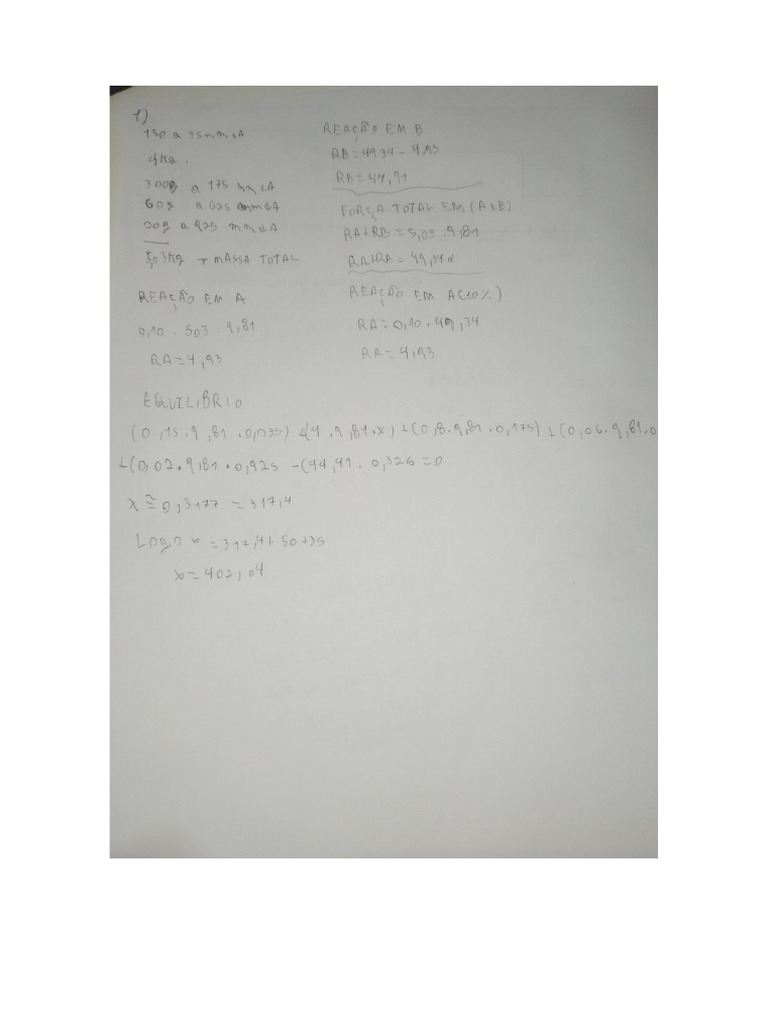 1)
150 a 35mm dA
4Kg.
300g a 175 mm dA
60g a 625 mm dA
20g a 925 mm dA
5,03Kg → MASSA TOTAL
REAÇÃO EM A
0,10 . 503 . 9,81
RA=4,93
REAÇÃO EM B
RB=4934 - 4,93
RB=44,41
FORÇA TOTAL EM (A+B)
RA+RB = 5,03 . 9,81
RA+RB = 49,34N
REAÇÃO EM A(10%)
RA=0,10 . 49,34
RA=4,93
EQUILIBRIO
(0,15.9,81.0,035)+(4.9,81.x)+(0,8.9,81.0,175)+(0,06.9,81.0
+(0,02.9,81.0,925 -(44,41.0,326=0
x≅0,3177 = 317,4
Logo = 317,4+50+35
x=402,04